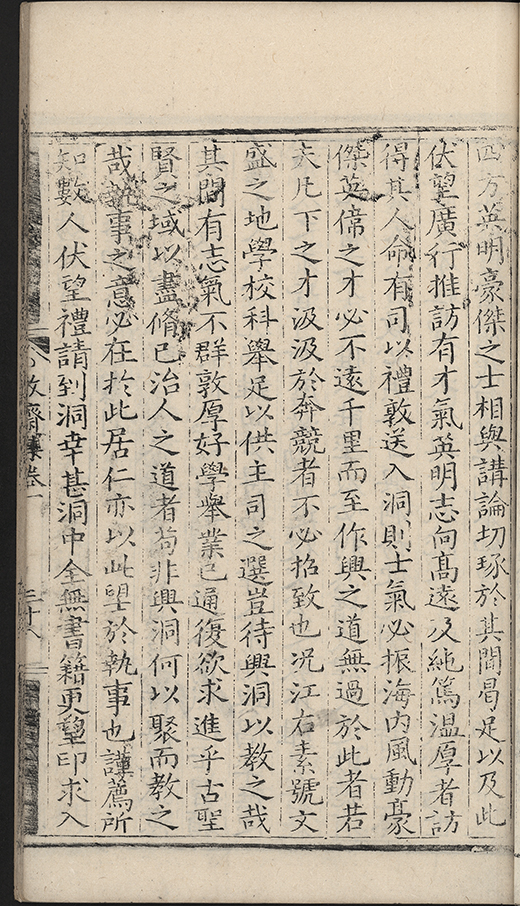 四方英明豪傑之士相與講論切琢於其間曷足以及此
伏望廣行推訪有才氣英明志向髙遠及純篤温厚者訪
得其人命有司以禮敦送入洞則士氣必振海内風動豪
傑英偉之才必不遠千里而至作興之道無過於此者若
夫凡下之才汲汲於奔競者不必招致也况江右素號文
盛之地學校科舉足以供主司之選豈待興洞以教之哉
其間有志氣不群敦厚好學舉業已通復欲求進乎古聖
賢之域以盡脩己治人之道者苟非興洞何以聚而教之
哉執事之意必在於此居仁亦以此望於執事也謹薦所
知數人伏望禮請到洞幸甚洞中全無書籍更望印求入
敬齋集卷一
三十八